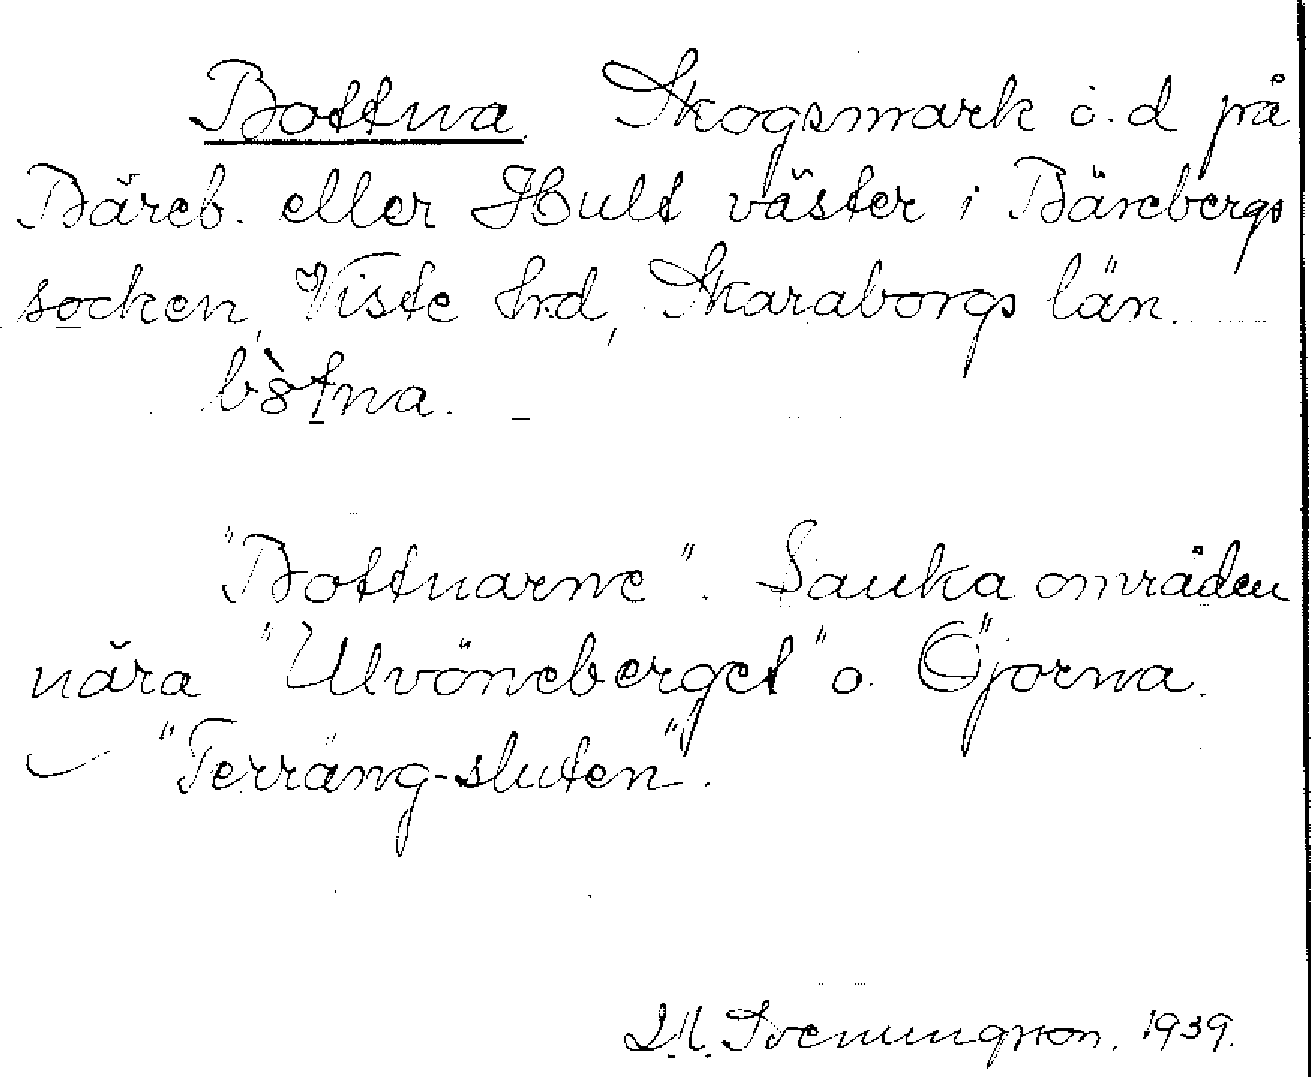 Bottna. Skogsmark i.d på
Bäreb. eller Hult väster i Bärebergs
socken, Viste hrd, Skaraborgs län.
"Bottnarne". Sanka områden
nära "Ulvöneberget" o. Öjorna.
"Terräng-sluten".
Svenungsson. 1939.